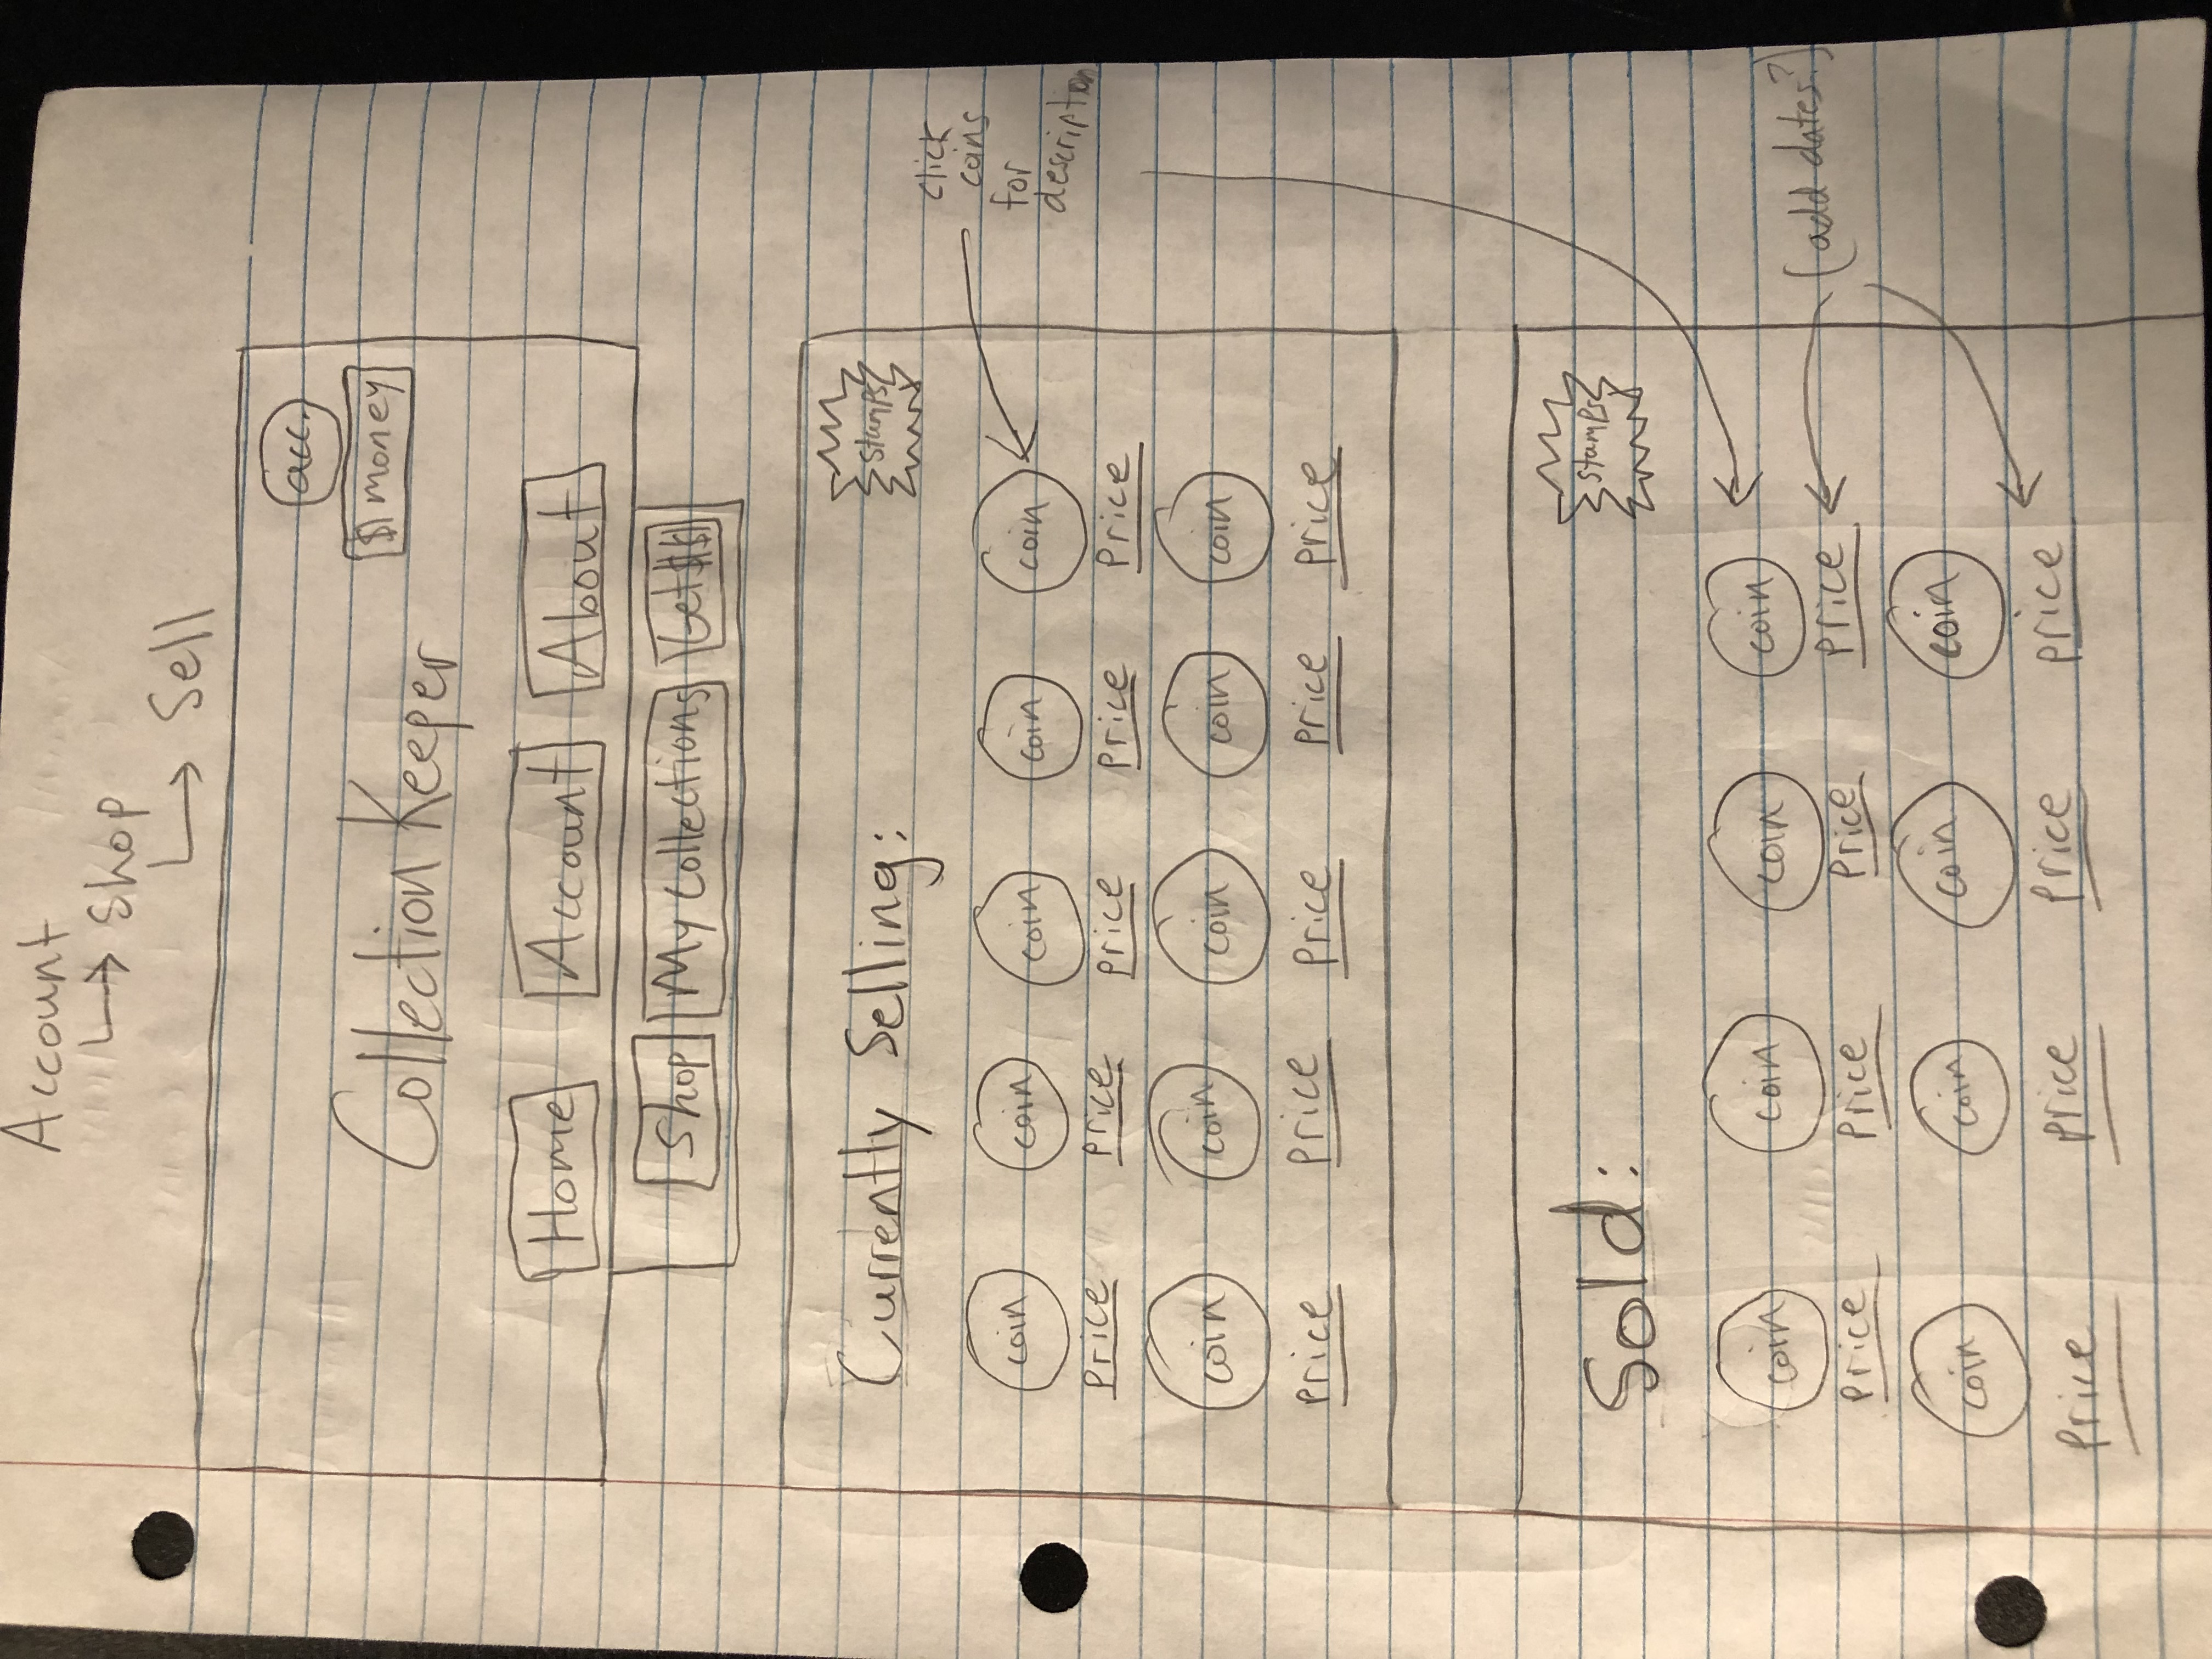 Account
Shop
Sell
acc.
$ money
Collection Keeper
Home Account About
Shop My Collections Get $$$
Currently Selling:
stamps
click
coins
for
description
coin coin coin coin coin
price price price price price
coin coin coin coin coin
price price price price price
Sold:
stamps
coin coin coin coin
price price price price
(add dates?)
coin coin coin coin
price price price price